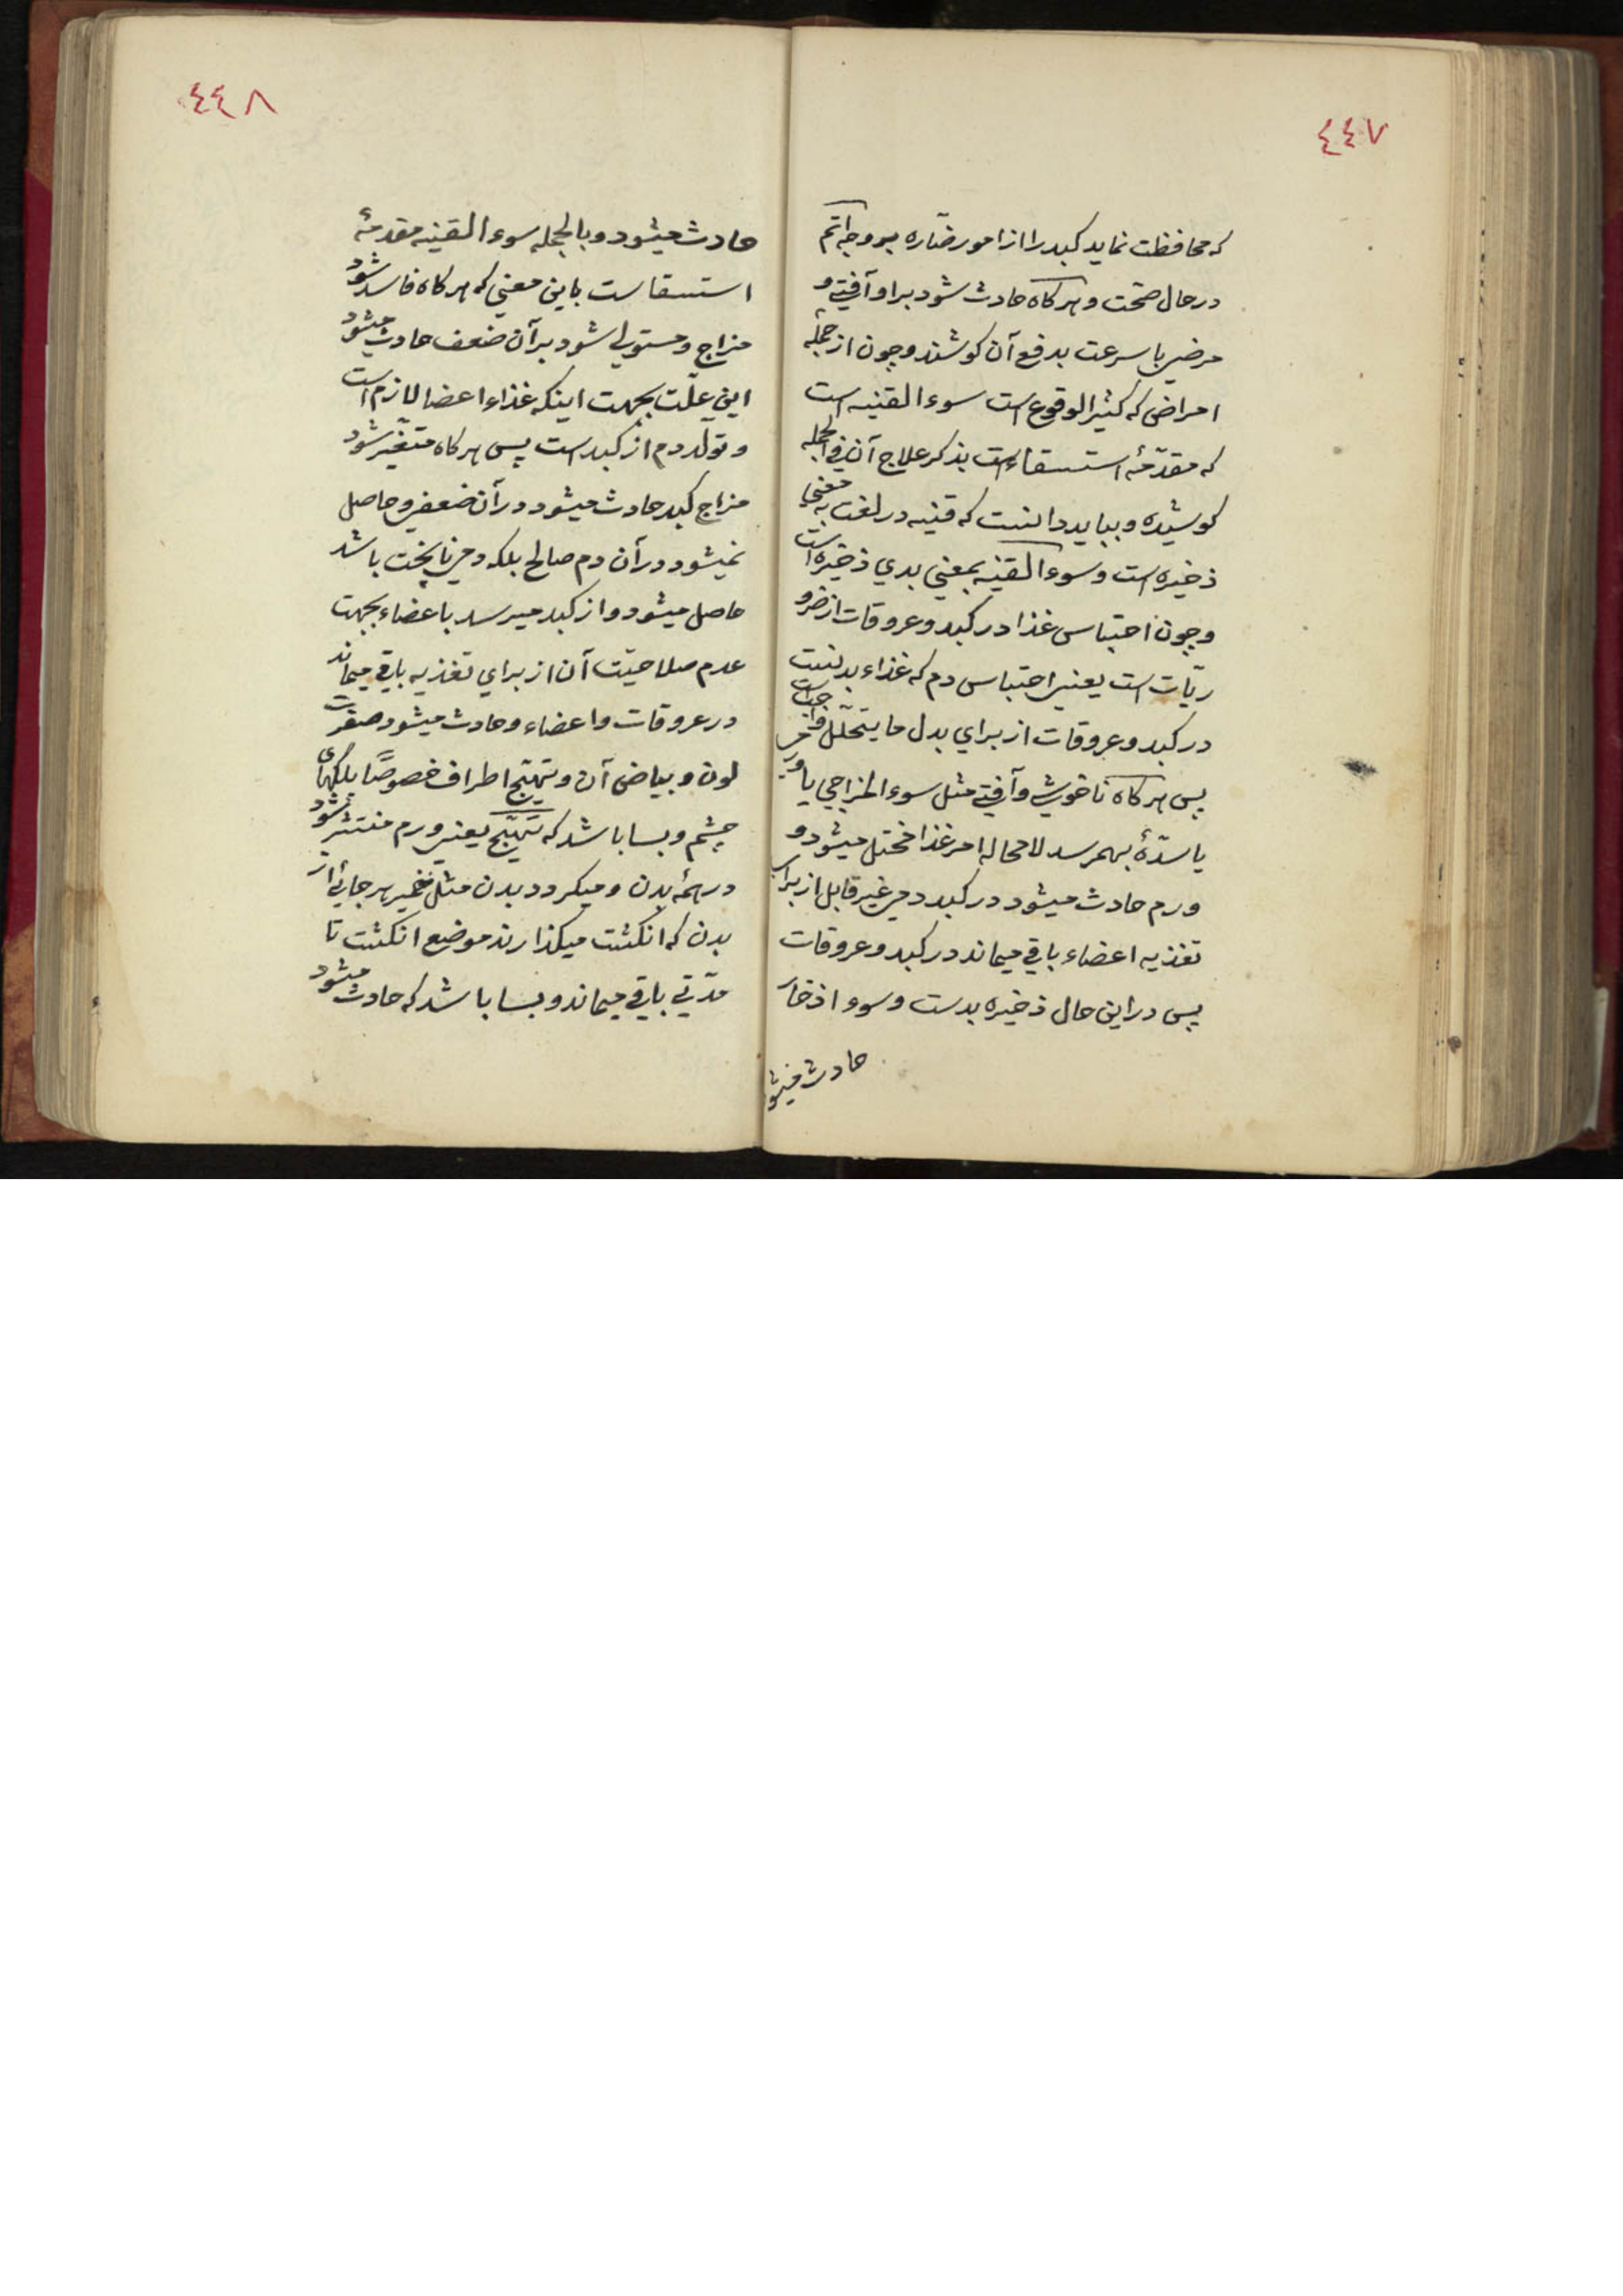 ٤٤٧
که محافظت نماید کبد را از امور ضارّه بروجه اتّم
در حال صحّت و هرکاه حادث شود بر او آفتی و
مرضی با سرعت بدفع آن کوشند و چون از جملهٔ
امراضی که کثیر الوقوع است سوء القنیه است
که مقدّمهٔ استسقاء است بذکر علاج آن فی الجمله
کوشیده و بباید دانست که قنیه در لغت به معنی
ذخیره است و سوء القنیه بمعنی بدی ذخیره است
و چون احتباس غذا در کبد و عروقات از ضرو
ریّات است یعنی احتباس دم که غذاء بدنست
در کبد و عروقات از برای بدل ما یتحلّل
پس هرکاه ناخوشی و آفتی مثل سوء المزاجی یا
یا سدّهٔ بهمرسد لا محاله امر غذا مختل میشود و
ورم حادث میشود در کبد دمی غیر قابل از برای
تغذیه اعضاء باقی میماند در کبد و عروقات
پس در این حال ذخیره بدست و سوء اذخار
حادث میشو
٤٤٨
حادث میشود و بالجمله سوء القنیه مقدمهٔ
استسقا ست باین معنی که هرکاه فاسد شود
مزاج و مستولی شود بر آن ضعف حادث میشود
این علّت بجهت اینکه غذاء اعضا لازم است
و تولّد دم از کبد است پس هرکاه متغیّر شود
مزاج کبد حادث میشود در آن ضعفی و حاصل
نمیشود در آن دم صالح بلکه دمی نا پخت باشد
حاصل میشود و از کبد میرسد باعضاء بجهت
عدم صلاحیّت آن از برای تغذیه باقی میماند
در عروقات و اعضاء و حادث میشود صفرت
لون و بیاض آن و تهیّج اطراف خصوصًا پلکهای
چشم و بسا باشد که تهیّج یعنی ورم منتشر شود
در همهٔ بدن و میکردد بدن مثل خمیر هر جائی از
بدن که انکشت میکذارند موضع انکشت تا
مدّتی باقی میماند و بسا باشد که حادث میشود